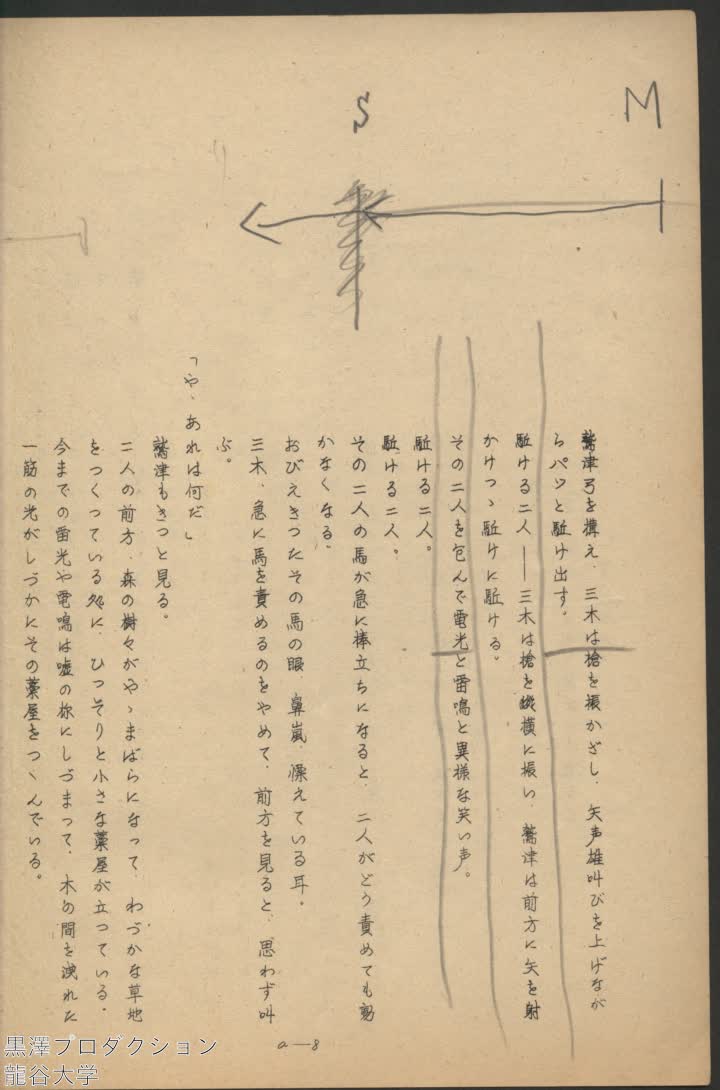 M
S
鷲津弓を構え、三木は槍を振かざし、矢声雄叫びを上げなが
らパッと駈け出す。
駈ける二人――三木は槍を縦横に振い、鷲津は前方に矢を射
かけつゝ駈けに駈ける。
その二人を包んで電光と雷鳴と異様な笑い声。
駈ける二人。
駈ける二人。
その二人の馬が急に棒立ちになると、二人がどう責めても動
かなくなる。
おびえきつたその馬の眼、鼻嵐、慄えている耳。
三木、急に馬を責めるのをやめて、前方を見ると、思わず叫
ぶ。
「や、あれは何だ」
鷲津もきつと見る。
二人の前方、森の樹々がやゝまばらになって、わづかな草地
をつくつている処に、ひつそりと小さな藁屋が立つている。
今までの雷光や電鳴は嘘の様にしづまって、木の間を洩れた
一筋の光がしづかにその藁屋をつゝんでいる。
a—8
黒澤プロダクション
龍谷大学